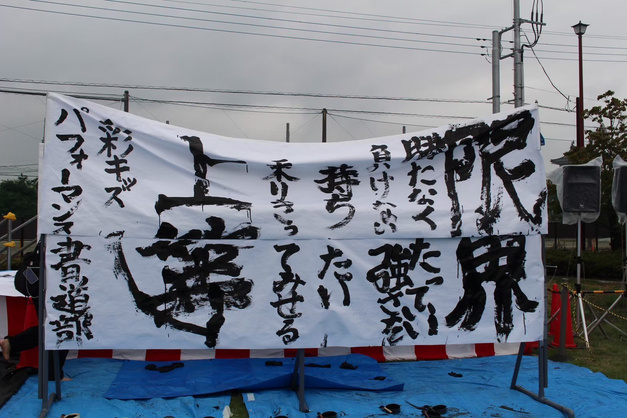 限界
勝たなくたっていい
負けない強さを
持ちたい
乗りきってみせる
上
彩キッズ
パフォーマンス書道部